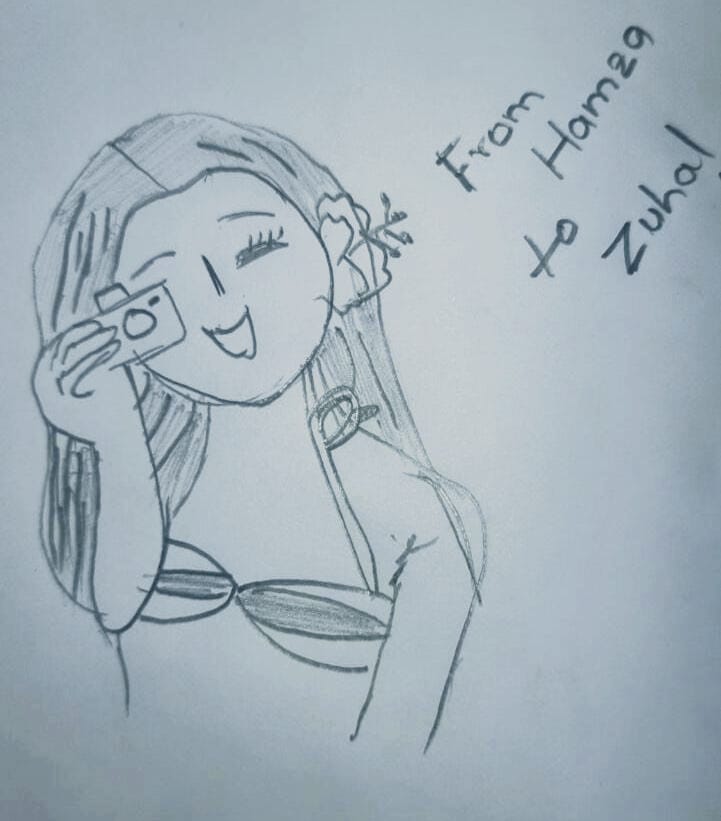 From
Hamza
to
Zuhal